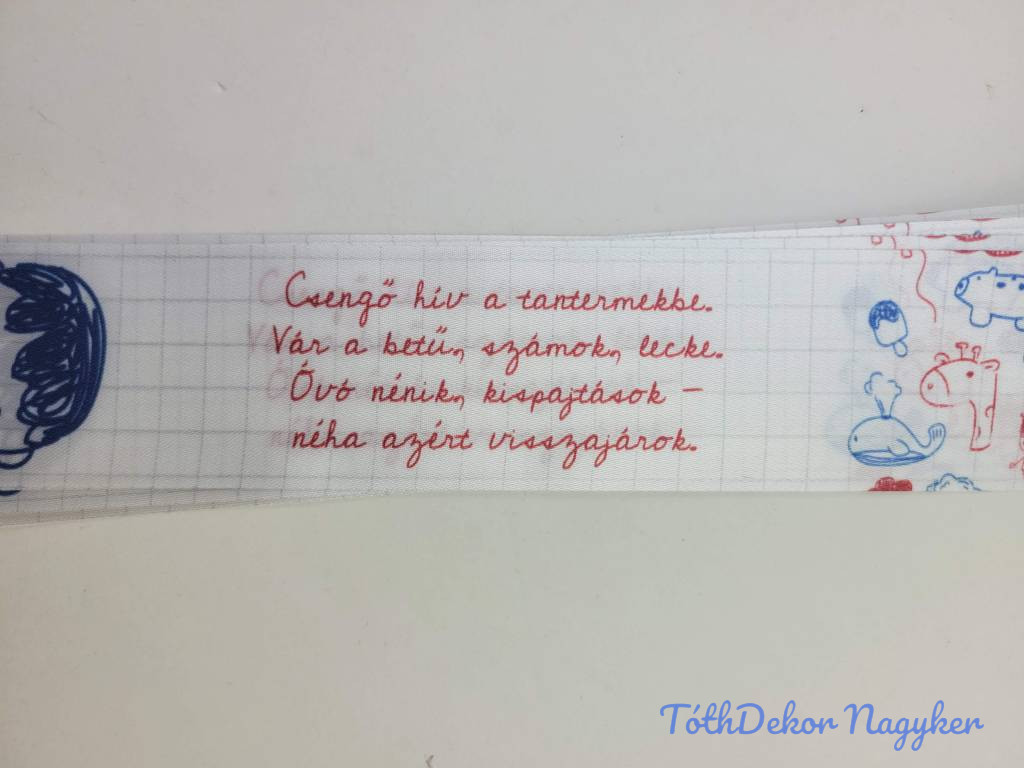 Csengő hív a tantermekbe.
Vár a betű, számok, lecke.
Óvó nénik, kispajtások –
néha azért visszajárok.
TóthDekor Nagyker